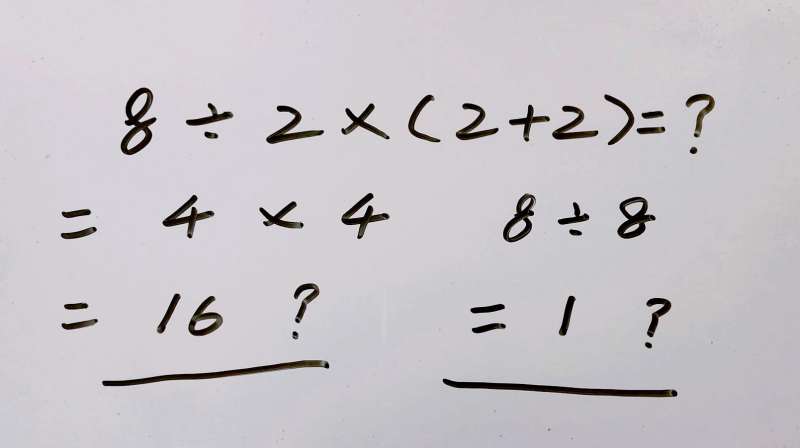 8 ÷ 2 × (2+2)= ?
= 4 × 4 8 ÷ 8
= 16 ? = 1 ?